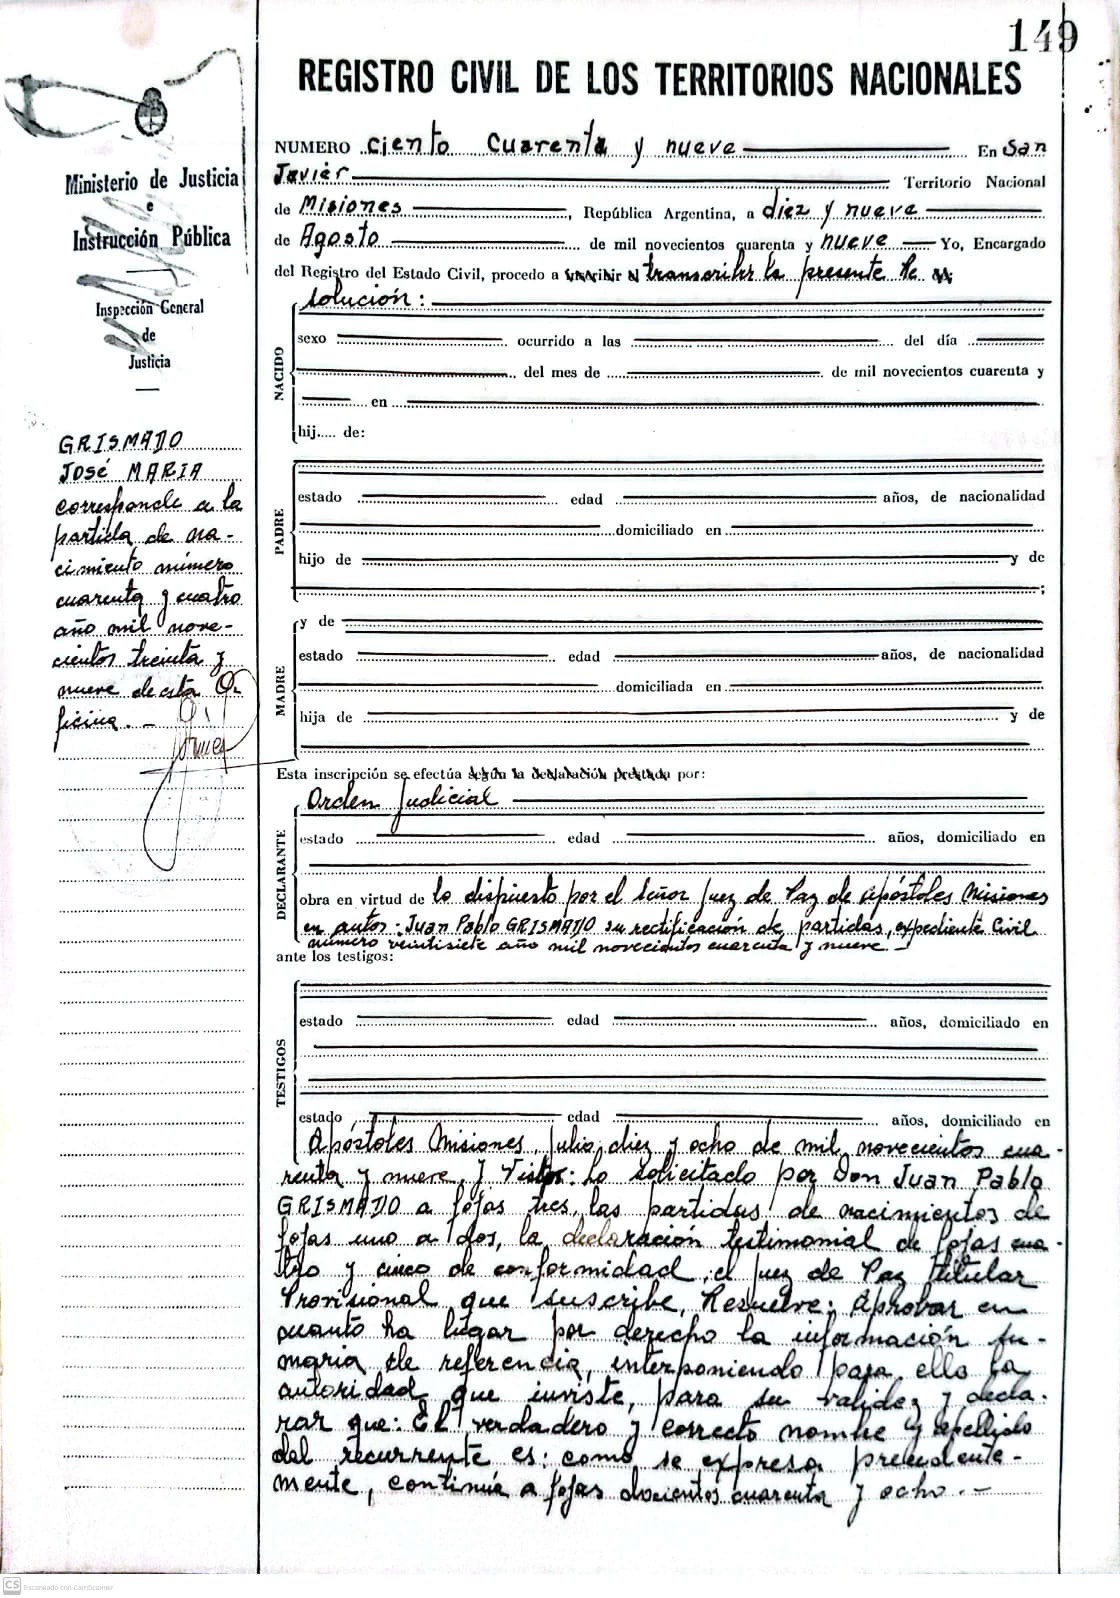 149
REGISTRO CIVIL DE LOS TERRITORIOS NACIONALES
Ministerio de Justicia
e
Instrucción Pública
Inspección General
de
Justicia
GRISMADO
José MARIA
corresponde a la
partida de na-
cimiento número
cuarenta y cuatro
año mil nove-
cientos treinta y
nueve de esta O-
ficina. -
NUMERO ciento cuarenta y nueve En San
Javier Territorio Nacional
de Misiones, República Argentina, a diez y nueve
de Agosto de mil novecientos cuarenta y nueve Yo, Encargado
del Registro del Estado Civil, procedo a transcribir la presente Re
solución:
NACIDO
sexo ocurrido a las del día
del mes de de mil novecientos cuarenta y
en
hij.... de:
PADRE
estado edad años, de nacionalidad
domiciliado en
hijo de y de
;
MADRE
y de
estado edad años, de nacionalidad
domiciliada en
hija de y de
Esta inscripción se efectúa según la declaración prestada por:
DECLARANTE
Orden Judicial
estado edad años, domiciliado en
obra en virtud de lo dispuesto por el Señor Juez de Paz de Apóstoles Misiones
en autos: Juan Pablo GRISMADO su rectificación de partidas, expediente Civil
número veintisiete año mil novecientos cuarenta y nueve. -
ante los testigos:
TESTIGOS
estado edad años, domiciliado en
estado edad años, domiciliado en
Apóstoles Misiones, Julio diez y ocho de mil novecientos cua-
renta y nueve. Y Vistos: Lo solicitado por Don Juan Pablo
GRISMADO a fojas tres, las partidas de nacimientos de
fojas uno a dos, la declaración testimonial de fojas cua-
tro y cinco de conformidad, el Juez de Paz titular
Provisional que suscribe, Resuelve: Aprobar en
cuanto ha lugar por derecho la información su-
maria de referencia, interponiendo para ello la
autoridad que inviste, para su validez y decla-
rar que: El verdadero y correcto nombre y apellido
del recurrente es: como se expresa precedente-
mente, continúa a fojas docientos cuarenta y ocho. -
CS Escaneado con CamScanner